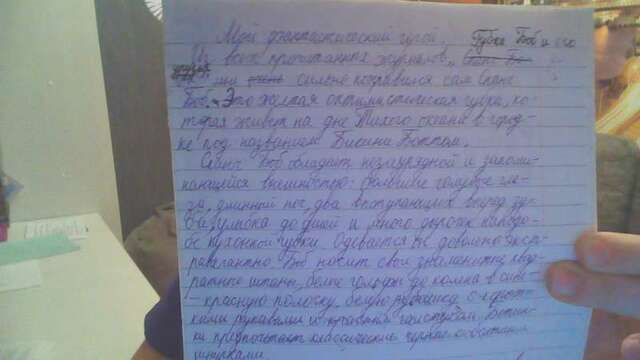 Мой фантастический герой.
Из всех прочитанных журналов „ Губка Боб и его
мне очень сильно понравился сам Спанч
Боб. Это желтая оптимистическая губка, ко-
торая живёт на дне Тихого океана в город-
ке под названием Бикини Боттом.
Спанч Боб обладает незаурядной и запоми-
нающейся внешностью: большие голубые гла-
за, длинный нос, два выступающих вперед зу-
ба, улыбка до ушей и много дырочек наподо-
бие кухонной губки. Одевается он довольно экст-
равагантно. Боб носит свои знаменитые квад-
ратные штаны, белые гольфы до колена в сине
– красную полоску, белую рубашку с коротк-
ими рукавами и красный галстук.
ки предпочитает классические черные с
шнурками.